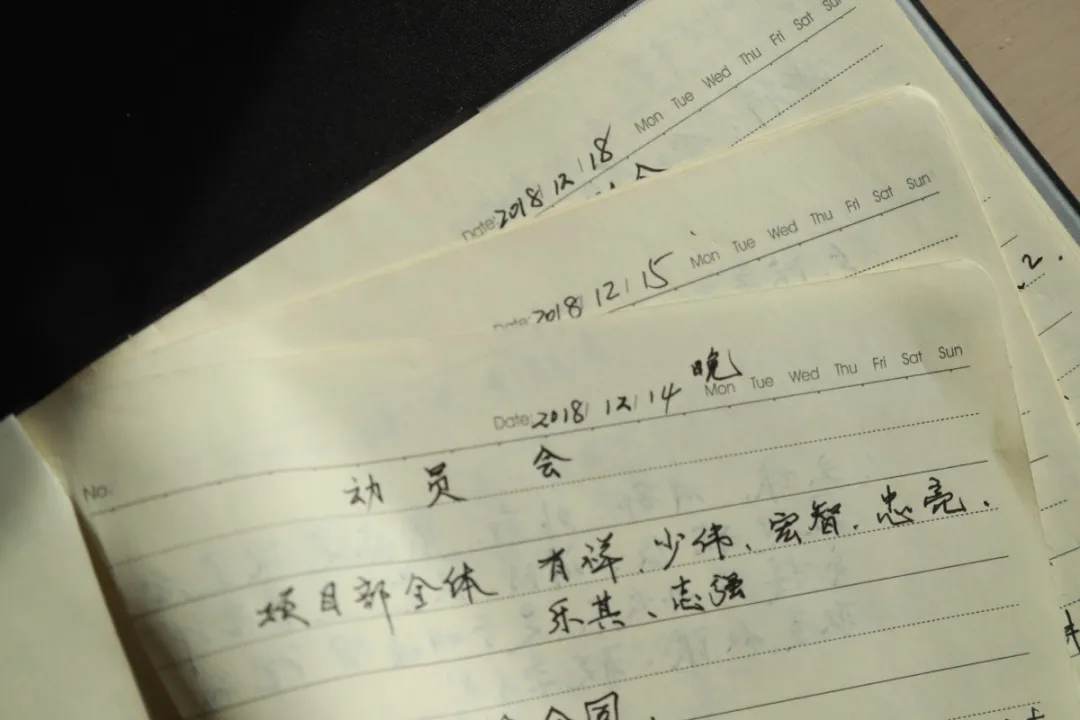 Date: 2018/12/18 Mon Tue Wed Thu Fri Sat Sun
Date: 2018/12/15 Mon Tue Wed Thu Fri Sat Sun
2.
晚
No. Date: 2018/12/14 Mon Tue Wed Thu Fri Sat Sun
动员会
项目部全体 有祥、少伟、宏智、忠亮、
乐其、志强
合同